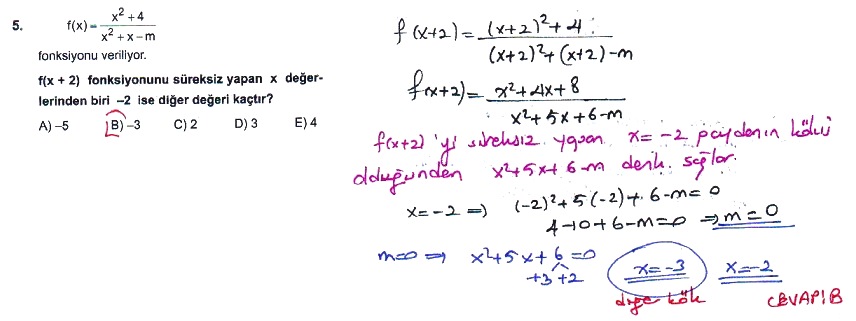 5. f(x) = x² + 4 / x² + x – m
fonksiyonu veriliyor.
f(x + 2) fonksiyonunu süreksiz yapan x değer-
lerinden biri –2 ise diğer değeri kaçtır?
A) –5 B) –3 C) 2 D) 3 E) 4
f(x+2) = (x+2)²+4 / (x+2)²+(x+2)-m
f(x+2) = x²+4x+8 / x²+5x+6-m
f(x+2) 'yi süreksiz yapan x=-2 paydanın kökü
olduğundan x²+5x+6-m denk. sağlar.
x=-2 => (-2)²+5(-2)+6-m=0
4-10+6-m=0 => m=0
m=0 => x²+5x+6=0
+3 +2
x=-3 x=-2
diğer kök CEVAP:B